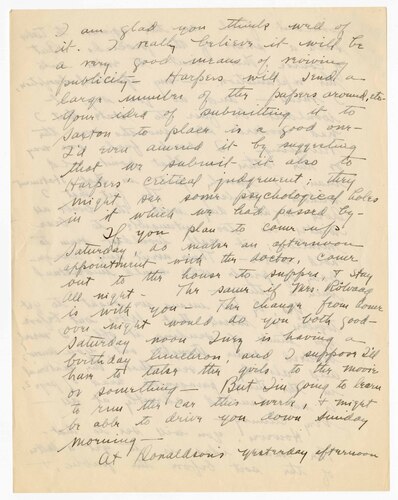 I am glad you think well of
it. I really believe it will be
a very good means of reviving
publicity — Harpers will send a
large number of the papers around, etc.
Your idea of submitting it to
Saxton to place is a good one —
I'd even amend it by suggesting
that we submit it also to
Harpers' critical judgement; they
might see some psychological holes
in it which we had passed by —
If you plan to come up
Saturday, do make an afternoon
appointment with the doctor, come
out to the house to supper, & stay
all night — The same if Mrs.
is with you — The change from
over night would do you both good —
Saturday noon is having a
birthday luncheon, and I suppose I'll
have to take the girls to the movie
or something — But I'm going to learn
to run the car this week, & might
be able to drive you down Sunday
morning —
At Donaldsons yesterday afternoon